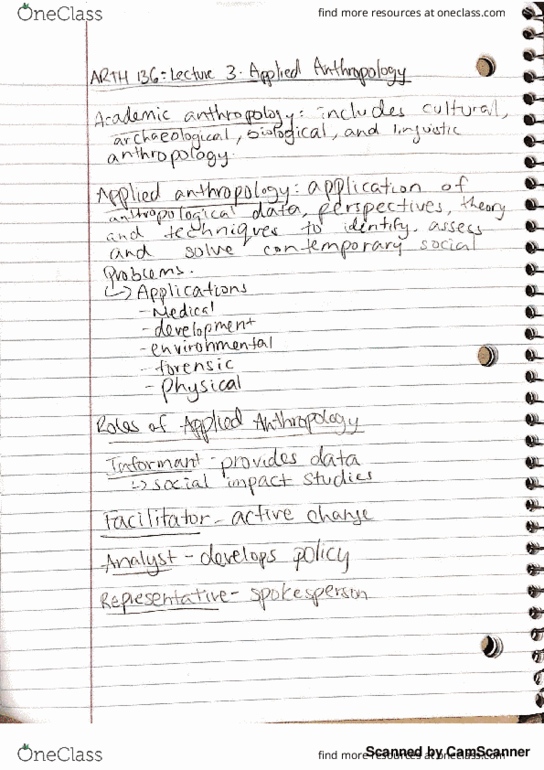 OneClass
find more resources at oneclass.com
ARTH 136: Lecture 3: Applied Anthropology
Academic anthropology: includes cultural,
archaeological, biological, and linguistic
anthropology
Applied anthropology: application of
anthropological data, perspectives, theory
and techniques to identify, assess
and solve contemporary social
problems.
↳ Applications
- Medical
- development
- environmental
- forensic
- Physical
Roles of Applied Anthropology
Informant - provides data
↳ social impact studies
Facilitator - active change
Analyst - develops policy
Representative - spokesperson
OneClass
find more resources at oneclass.com
Scanned by CamScanner